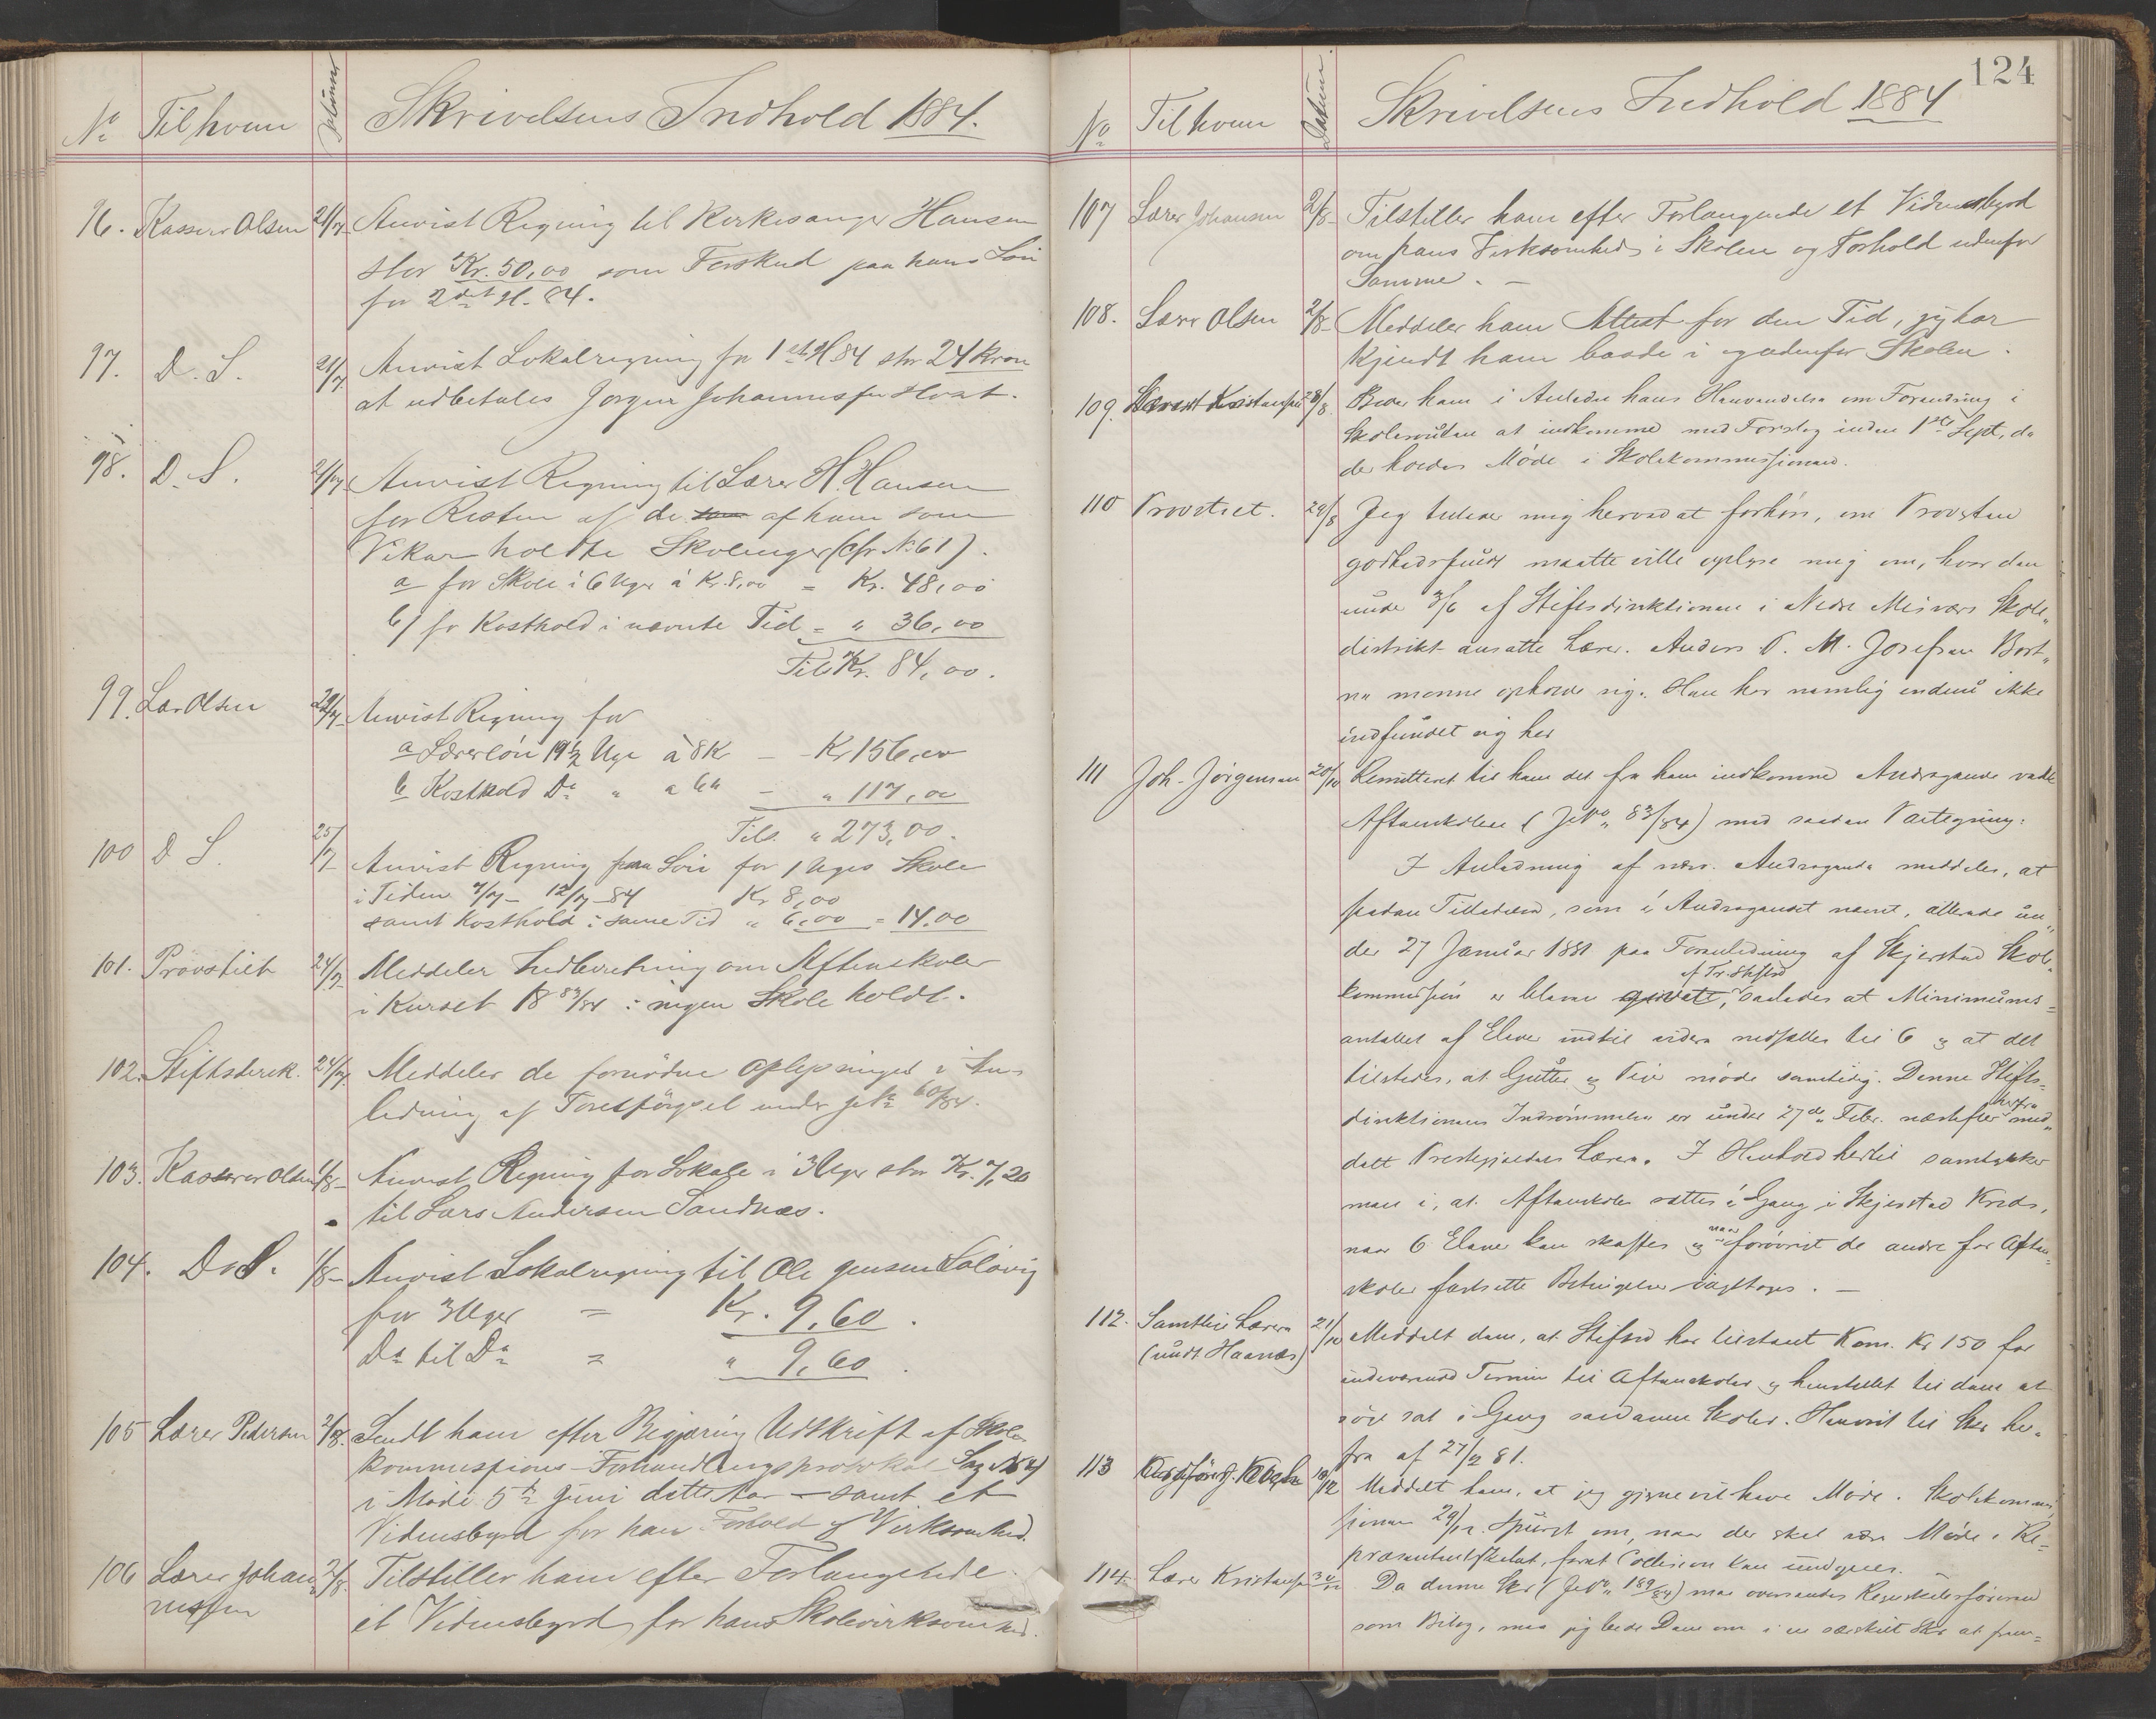 No Til hvem Datum Skrivelsens Indhold 1884.
96. Kasserer Olsen 21/7 Anvist Regning til Kirkesanger Hansen
stor Kr. 50,00 som Forskud paa hans Løn
for 2det H. 84.
97. D. S. 21/7 Anvist Lokalregning for 1ste H 84 stor 24 Kroner
at udbetales Jørgen Johannessen
98. D. S. 21/7 Anvist Regning til Lærer H. Hansen
for Resten af de som af ham som
Vikar holdte Skoleuger (cfr No 61).
a for Skole i 6 Uger á Kr. 8,00 = Kr. 48,00
b) for Kosthold i nævnte Tid = " 36,00
Tils Kr. 84,00.
99. Olsen 22/7 Anvist Regning for
a Lærerløn 19½ Uge à 8 K – Kr 156,00
b Kosthold Do " a 6 " – " 117,00
Tils. " 273,00.
100 D S. 25/7 Anvist Regning paa Løn for 1 Uges Skole
i Tiden 7/7 – 12/7 – 84 Kr 8,00
samt Kosthold i samme Tid " 6,00 = 14.00
101. Provstiet 24/7 Meddeler Indberetning om Aftenskoler
i Kurset 18 83/84 : ingen Skole holdt.
102. Stiftsdirek. 24/7 Meddeler de fornødne Oplysninger i An-
ledning af Forespørgsel under JNo 60/84.
103. Kasserer Olsen 1/8 Anvist Regning for Lokale i 3 Uger stor Kr. 7,20
til Lars Andersen Sandnæs.
104. D. S. 1/8 Anvist Lokalregning til Ole Jensen
for 3 Uger = Kr. 9,60.
Do til Do = " 9,60.
105 Lærer Pedersen 2/8 Sendt ham efter Begjæring Udskrift af Skole-
kommissions-Forhandlingsprotokol Sag No 4
i Møde 5te Juni dette Aar – samt et
Vidnesbyrd for hans Forhold og Virksomhed.
106 Lærer Johan- 2/8 Tilstiller ham efter Forlangende
nessen et Vidnesbyrd for hans Skolevirksomhed.
124
No Til hvem Datum Skrivelsens Indhold 1884
107 Lærer Johansen 2/8 Tilstiller ham efter Forlangende et Vidnesbyrd
om hans Virksomhed i Skolen og Forhold udenfor
Samme. –
108. Lærer Olsen 2/8 Meddeler ham Attest for den Tid, jeg har
kjendt ham baade i og udenfor Skolen.
109. Kristensen 28/8 Beder ham i Anledn hans Henvendelse om Forandring i
Skoleruten at indkomme med Forslag inden 1ste Sept, da
der holdes Møde i Skolekommissionen.
110 Provstiet. 29/8 Jeg tillader mig herved at forhøre, om Provsten
godhedsfuldt maatte ville oplyse mig om, hvor den
under 3/6 af Stiftsdirektionen i Nedre Misvær Skole-
distrikt ansatte Lærer. Anders P. M. Josefsen
monne opholde sig. Han har nemlig endnu ikke
indfundet sig her
111 Joh. Jørgensen 20/10 Remitteret til ham det fra ham indkomne Andragende vedk
Aftenskolen (JNo 83/84) med saadan Paategning:
I Anledning af nærv. Andragende meddeles, at
saadan Tilladelse, som i Andragendet nævnt, allerede un-
der 27 Januar 1881 paa Foranledning af Skjerstad Skole-
kommission er bleven givet, af Tr. Stiftsd saaledes at Minimums-
antallet af Elever indtil videre nedsættes til 6 og at det
tilstedes, at Gutter og Piger møde samtidig. Denne Stifts-
direktionens Indrømmelse er under 27de Febr. næstefter herfra med-
delt Præstegjældets Lærere. I Henhold hertil samtykker
man i, at Aftenskole sættes i Gang i Skjerstad Kreds,
naar 6 Elever kan skaffes og naar forøvrigt de andre for Aften-
skoler fastsatte Betingelser iagttages. –
112. Samtlige Lærere 21/10 Meddelt dem, at Stiftsd har tilstaaet Kom. Kr 150 for
(undt Haanæs) indeværende Termin til Aftenskoler og henstillet til dem at
søge sat i Gang saadanne Skoler. Henvist til Skr her-
fra af 27/2 81.
113 /12 Meddelt ham, at jeg gjerne vil have Møde i Skolekommis-
sionen 29/12. Spurgt om, naar der skal være Møde i Re-
præsentantskabet, forat Collision kan undgaaes.
114. Lærer Kristensen Da denne Skr (JNo 189/84) maa oversendes Regnskabsføreren
som Bilag, maa jeg bede Dem om i en særskilt Skr at frem-